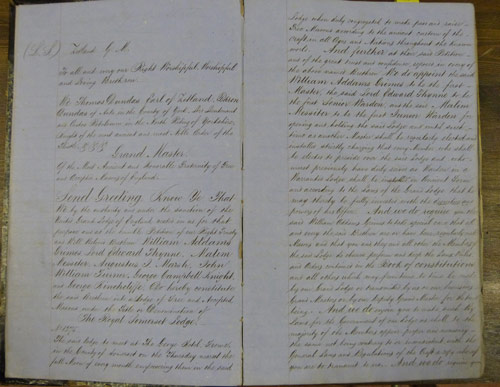 (L.S.) Zetland G M.
To all and every our Right Worshipful, Worshipful
and loving Brethren.
We Thomas Dundas Earl of Zetland, Baron
Dundas of Aske in the County of York, Lord Lieutenant
and Custos Rotulorum in the North Riding of Yorkshire,
Knight of the most ancient and most noble Order of the
Grand Master
Of the Most Ancient and Honorable Fraternity of Free
and Accepted Masons of England
Send Greeting Know Ye That
We by the authority and under the sanction of the
United Grand Lodge of England vested in us for that
purpose and at the humble Petition of our Right Trusty
and Well Beloved Brethren William Addams
Lord Edward Thynne, Malem
Augustus S. Marsh, John
William George Campbell Knight
and George Hinchcliffe Do hereby constitute
the said Brethren into a Lodge of Free and Accepted
Masons under the Title or Denomination of
The Royal Somerset Lodge
No
The said Lodge to meet at The George Hotel Frome
in the County of Somerset on the Thursday nearest the
full Moon of every month empowering them in the said
Lodge when duly congregated to make pass and raise
Free Masons according to the ancient custom of the
Craft in all Ages and Nations throughout the known
world. And further at their said Petition
and of the great trust and confidence reposed in every of
the above named Brethren We do appoint the said
William Addams to be the first
Master, the said Lord Edward Thynne to be
the first Senior Warden, and the said Malem
to be the first Junior Warden for
opening and holding the said Lodge and until such
time as another Master shall be regularly elected and
installed strictly charging that every Member who shall
be elected to preside over the said Lodge and who
must previously have duly served as Warden in a
Warranted Lodge shall be installed in Ancient form
and according to the Laws of the Grand Lodge that he
may thereby be fully invested with the
of his Office And we do require you the
said William Addams to take special care that all
and every the said Brethren are or have been regularly made
Masons and that you and they and all other the Members of
the said Lodge do observe perform and keep the Laws Rules
and Orders contained in the Book of Constitution
and all others which may from time to time be made
by our Grand Lodge or transmitted by us or our Successors
Grand Masters or by our Deputy Grand Master for the time
being. And we do
Laws for the Government of your Lodge as shall to the
majority of the Members appear proper and necessary
the same not being contrary to or inconsistent with the
General Laws and Regulations of the Craft a copy whereof
And we do require you